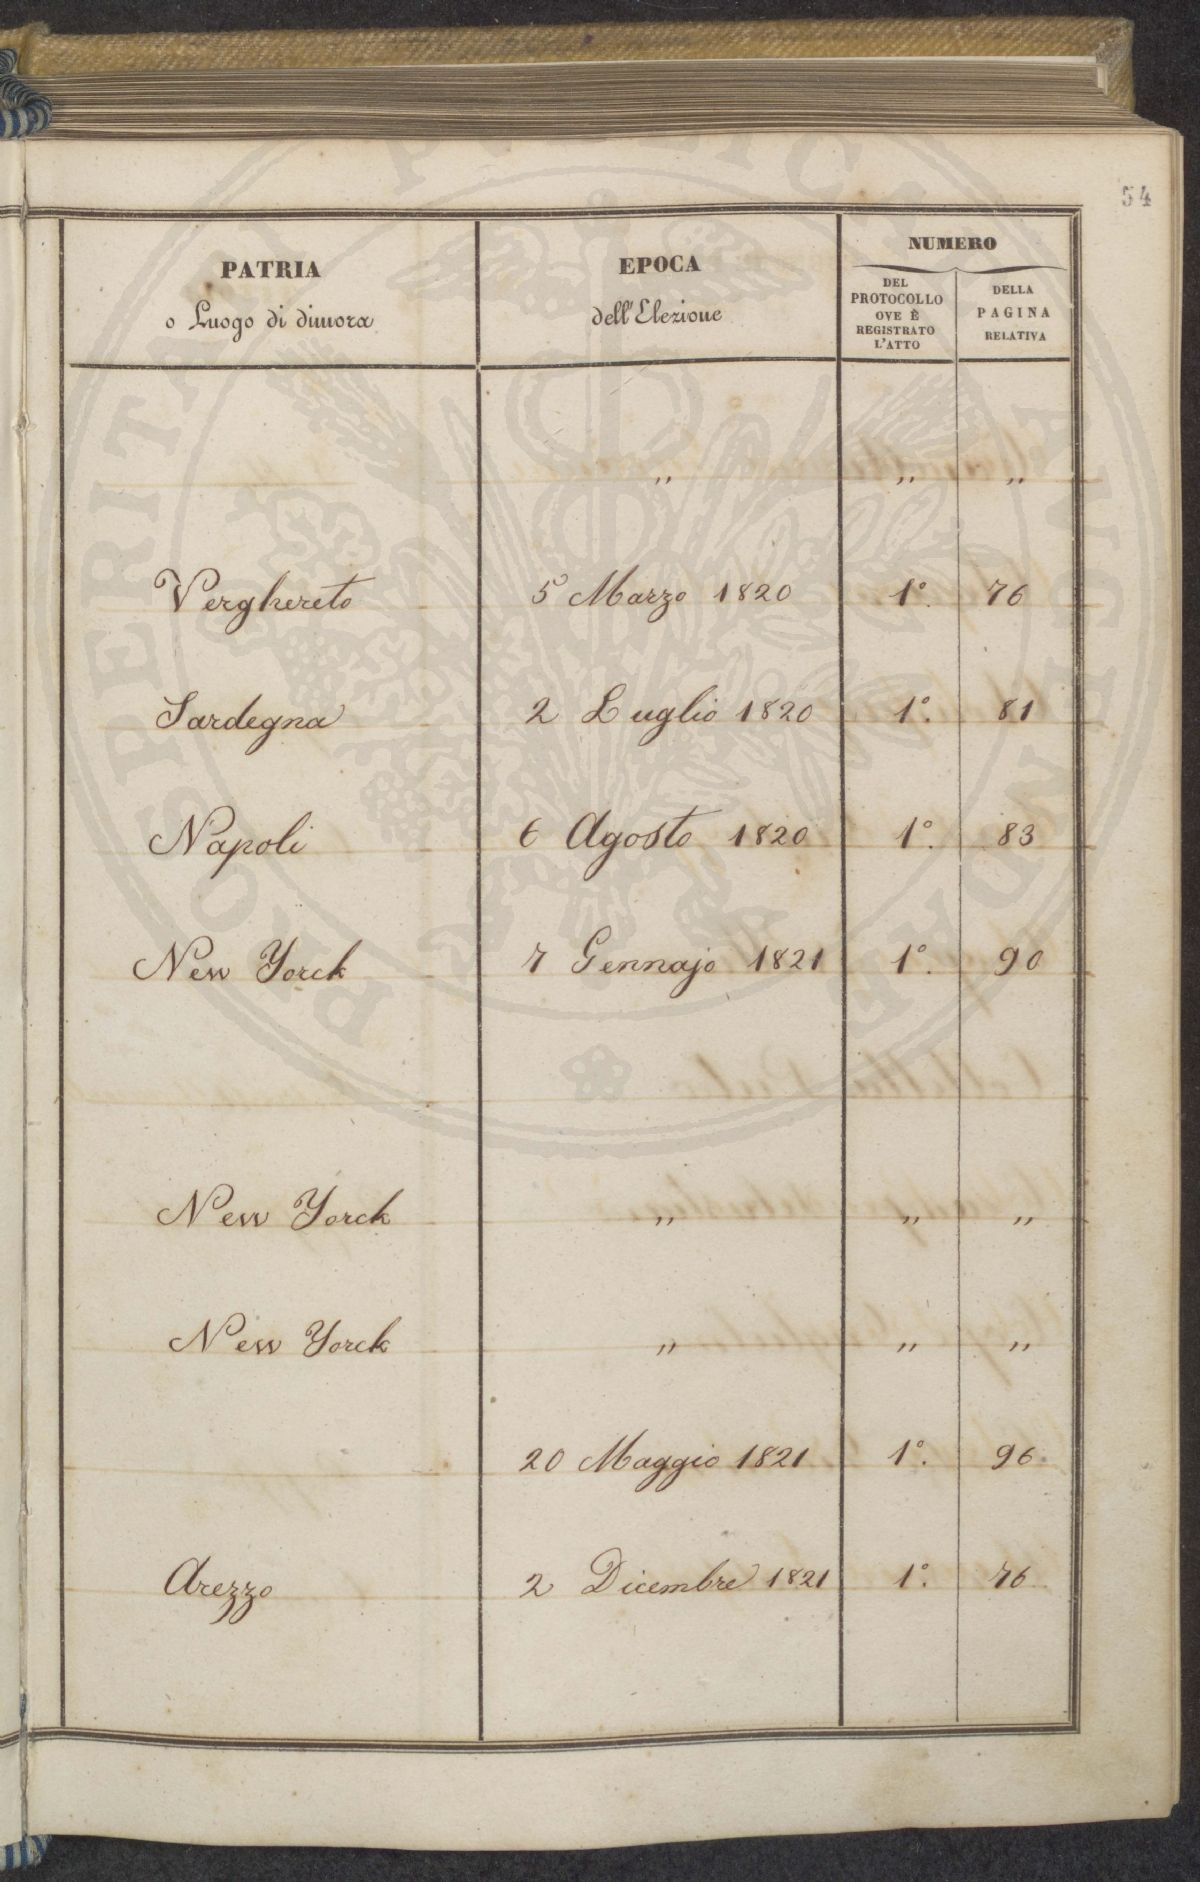 54
PATRIA
o Luogo di dimora
EPOCA
dell'Elezione
NUMERO
DEL
PROTOCOLLO
OVE È
REGISTRATO
L'ATTO
DELLA
PAGINA
RELATIVA
" " "
Verghereto 5 Marzo 1820 1º. 76
Sardegna 2 Luglio 1820 1º. 81
Napoli 6 Agosto 1820 1º. 83
New Yorck 7 Gennajo 1821 1º. 90
New Yorck " " "
New Yorck " " "
20 Maggio 1821 1º. 96.
Arezzo 2 Dicembre 1821 1º. 76
PROSPERITATI PUBLICAE AUGENDAE